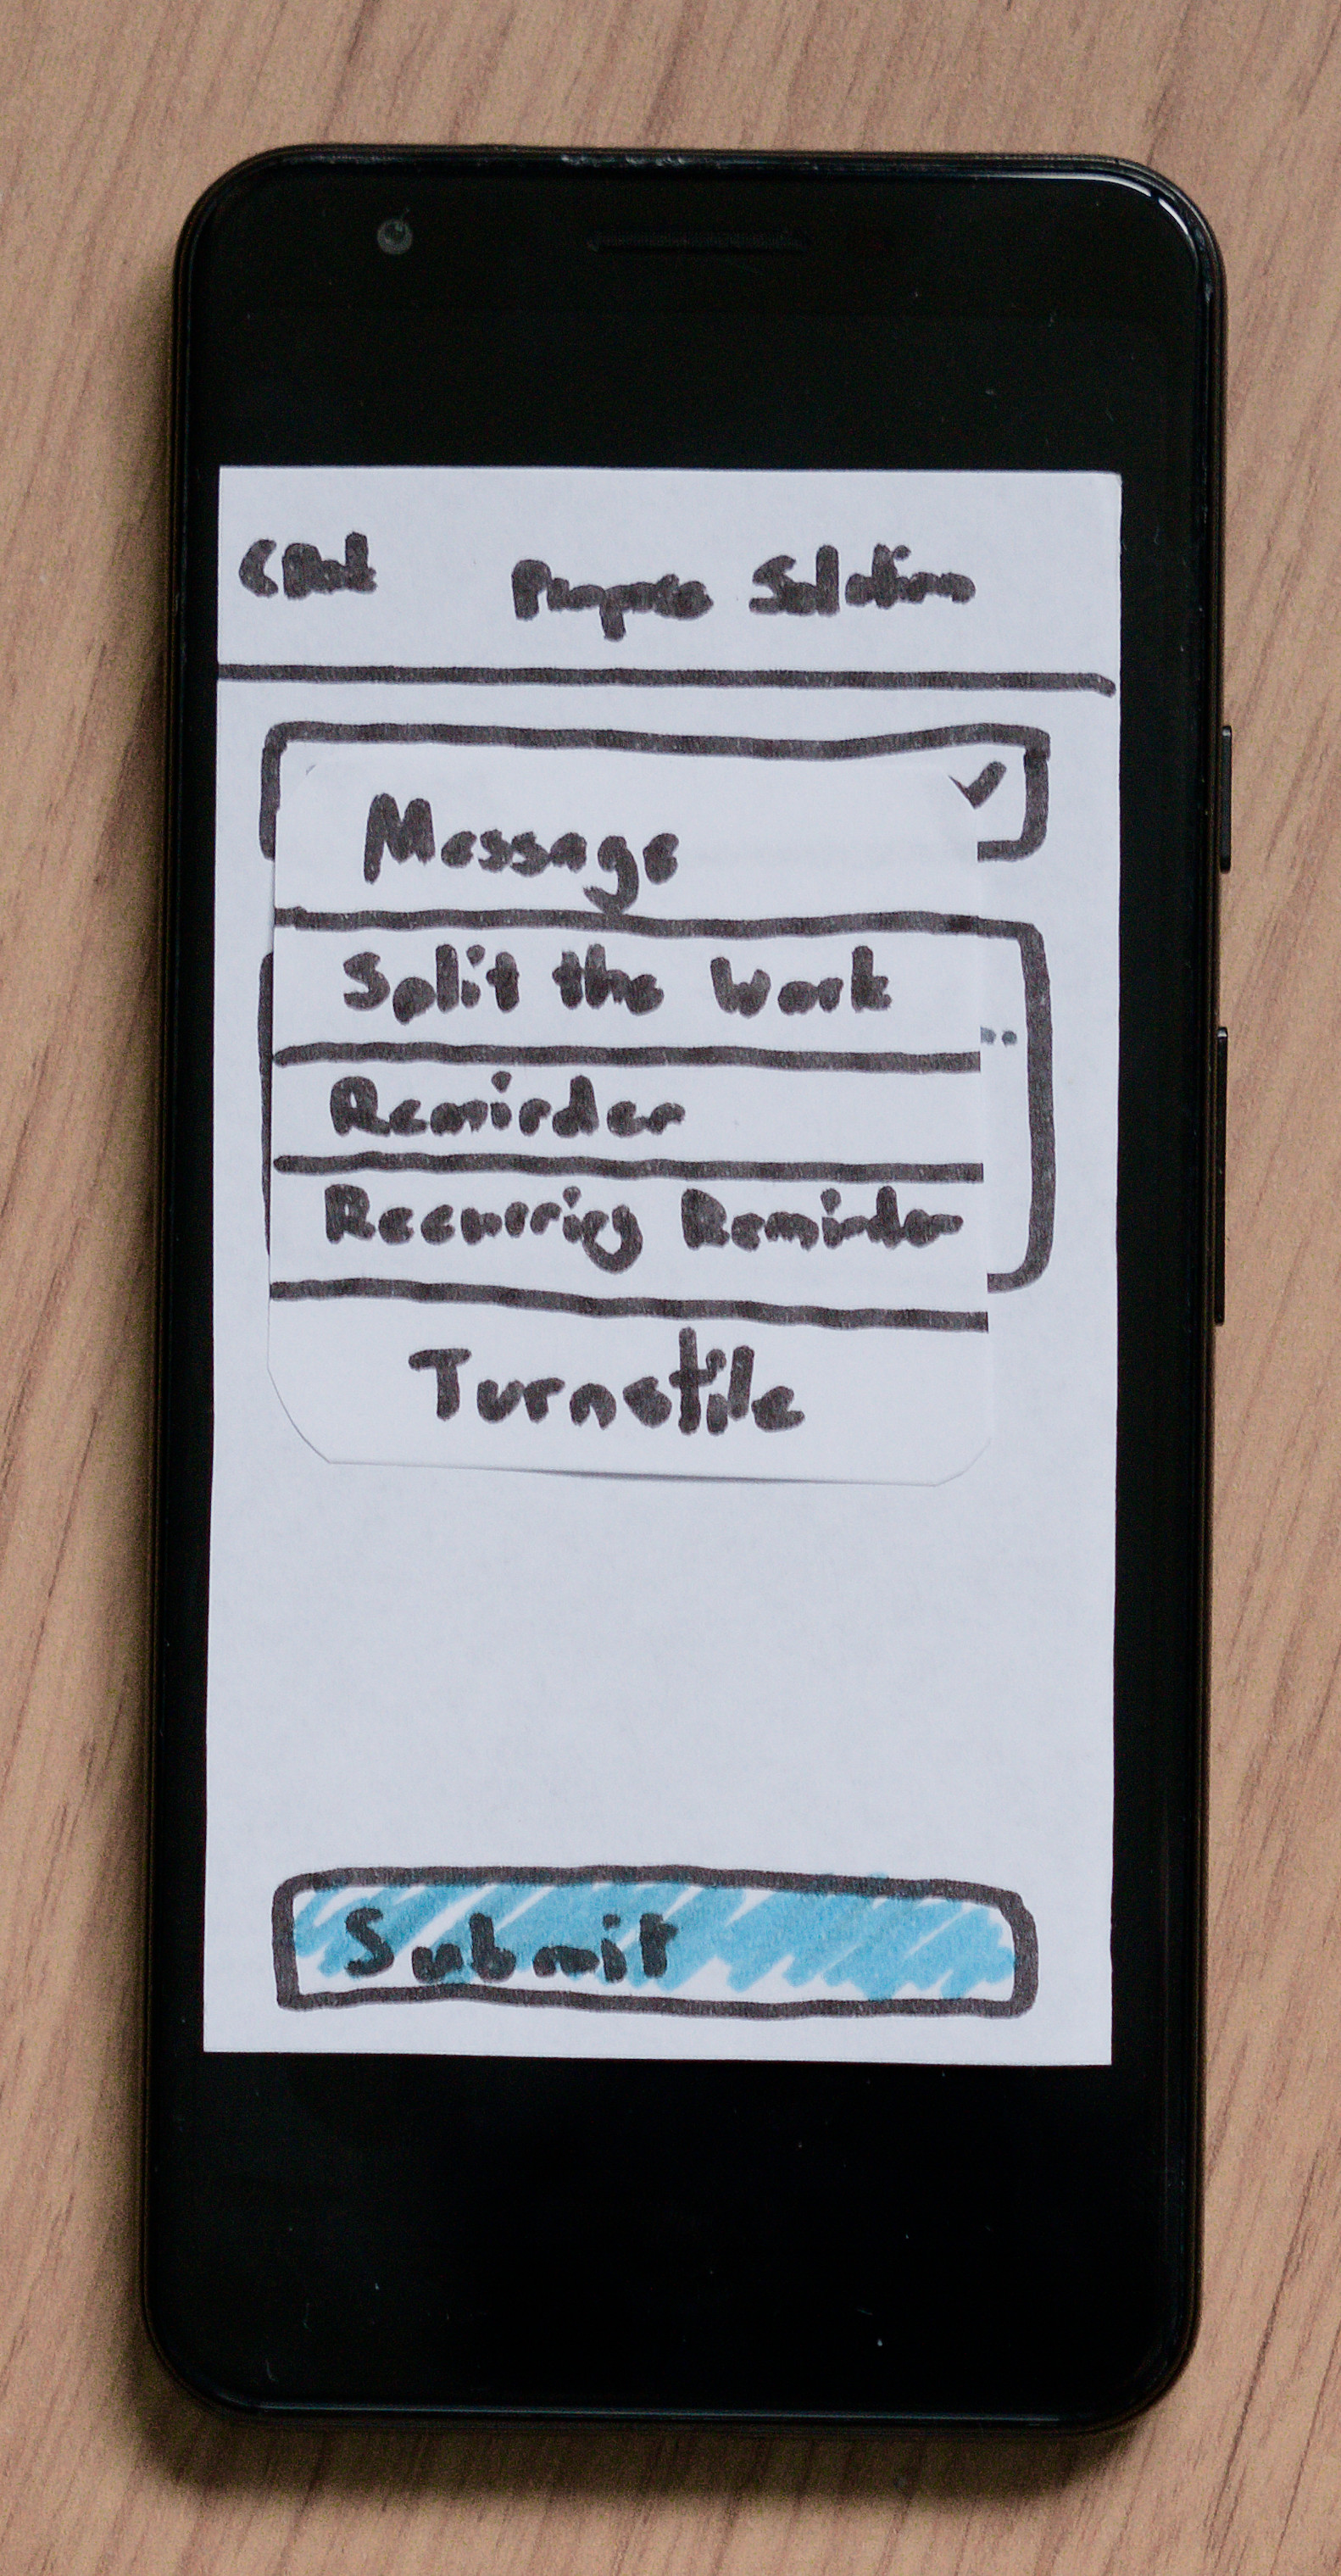 < Back Propose Solution
Message
Split the Work
Reminder
Recurring Reminder
Turnstile
Submit